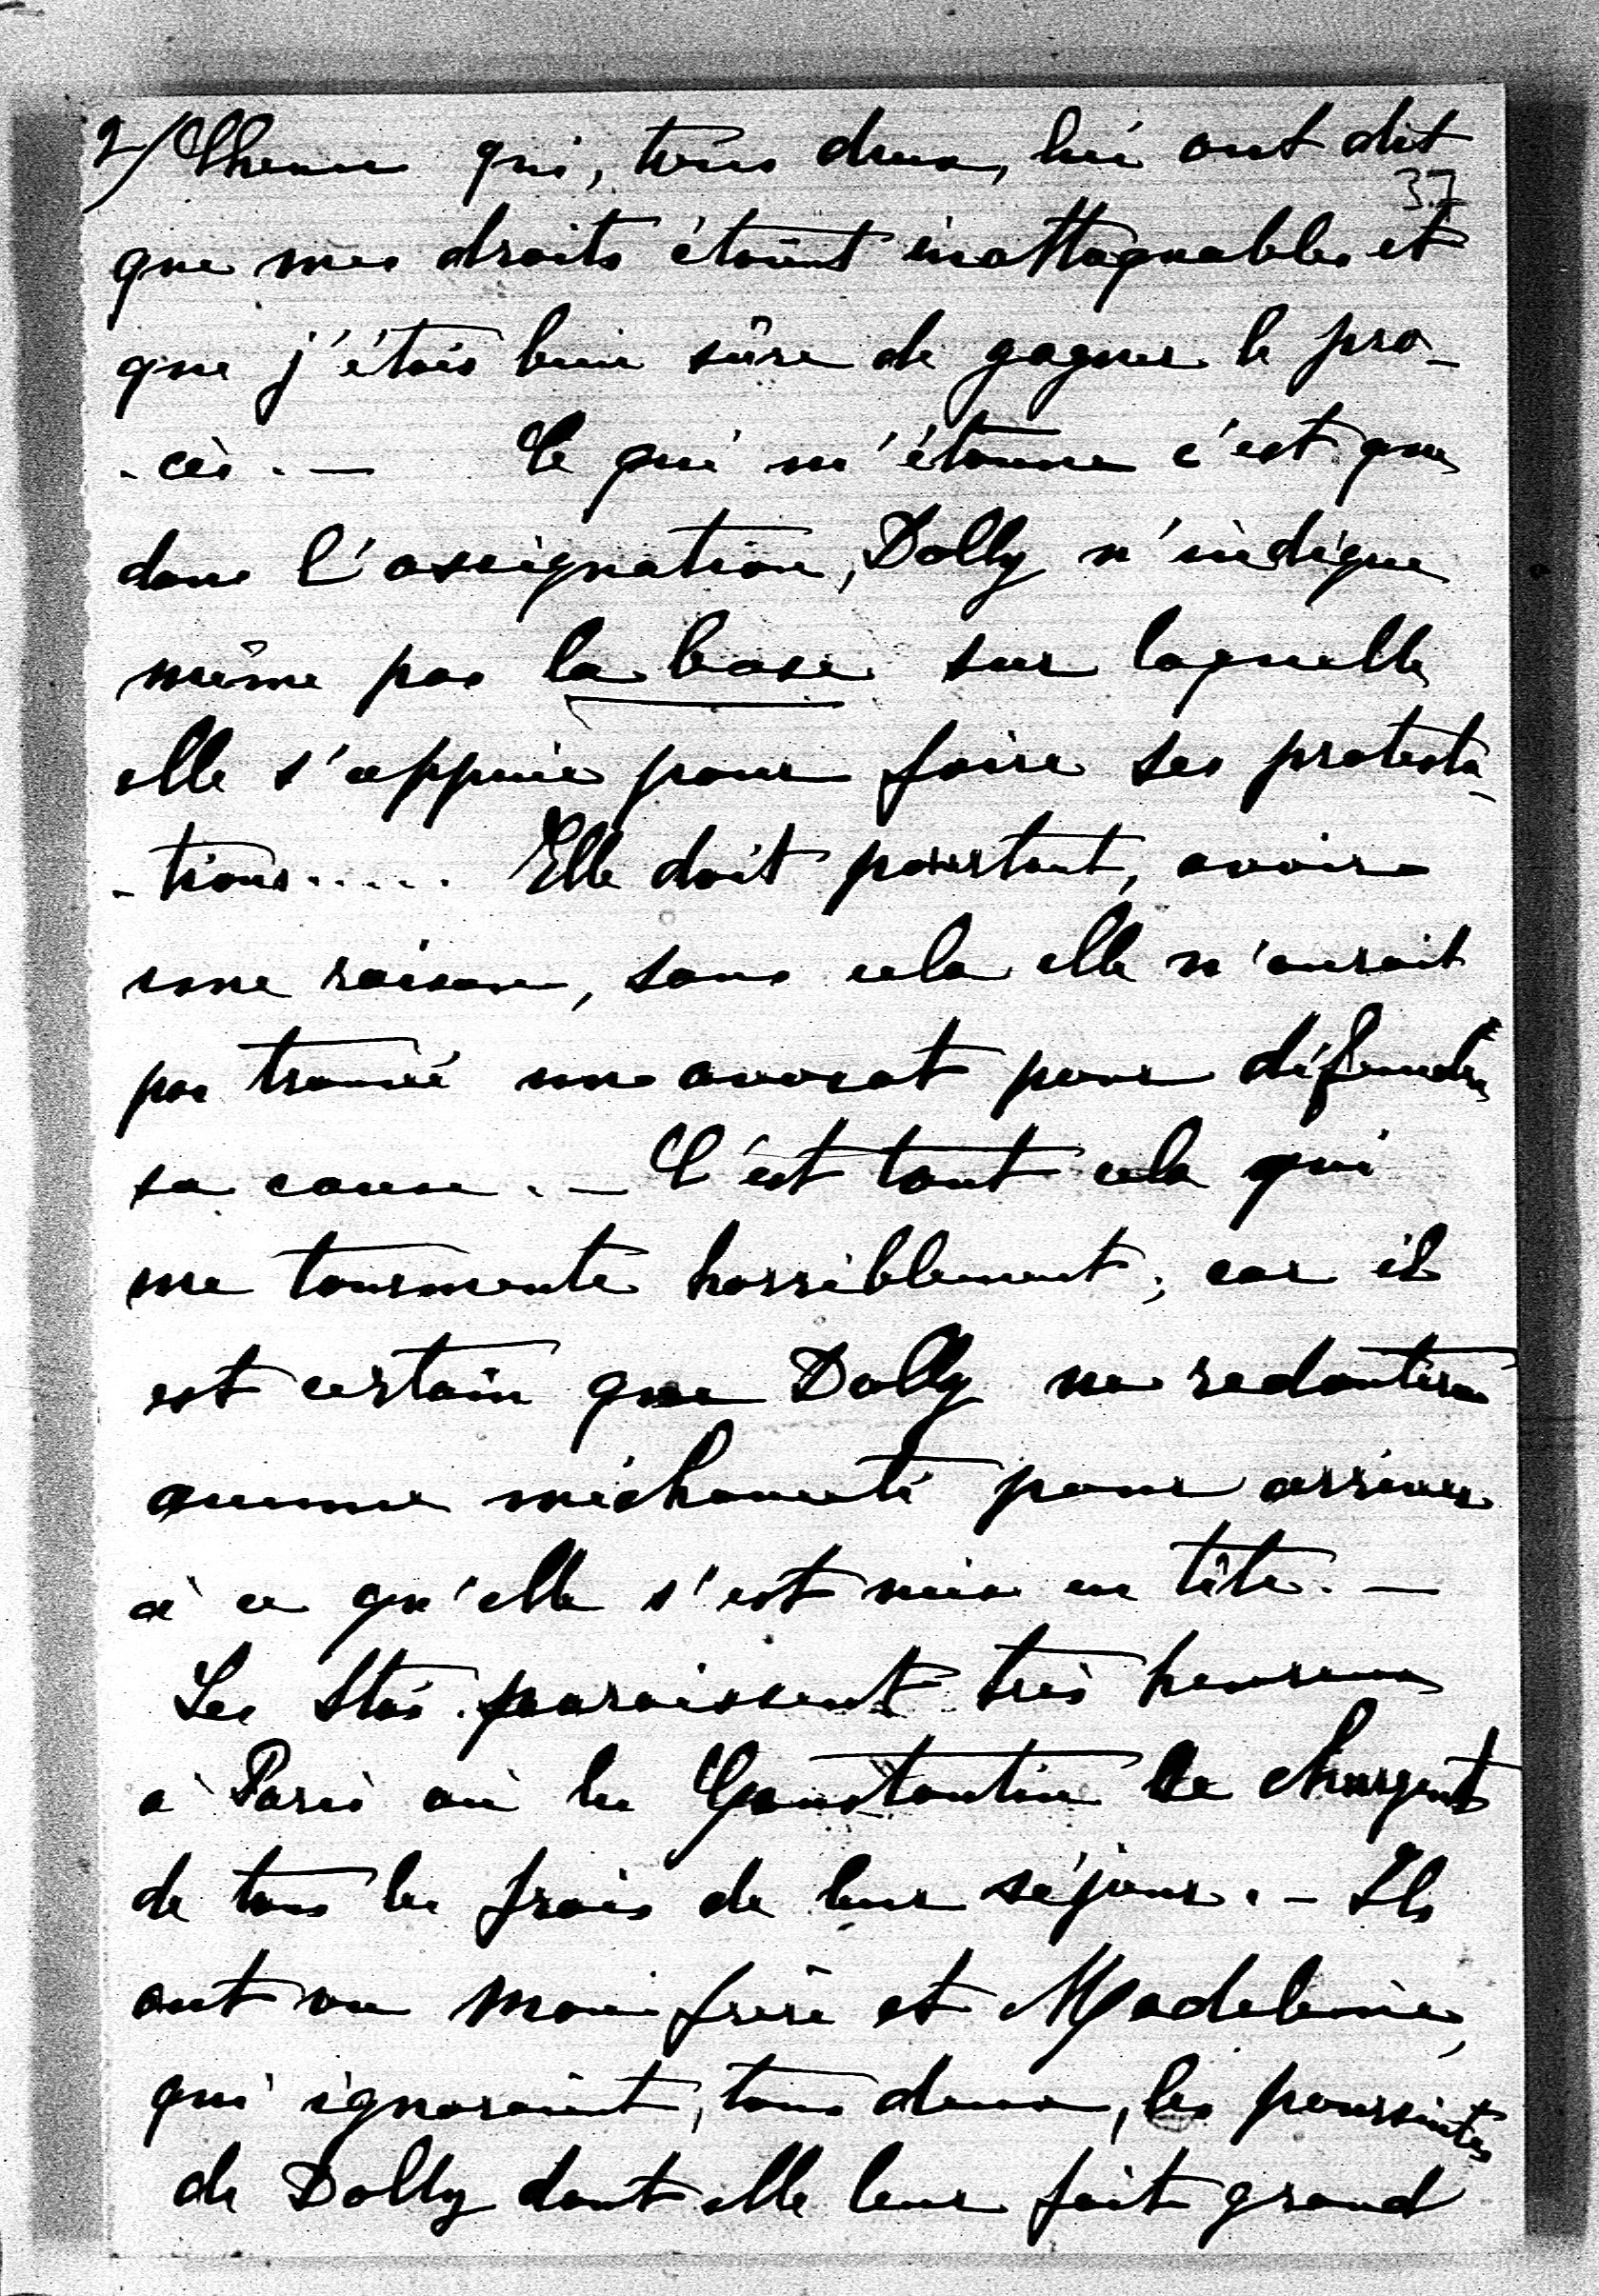 2/ qui, tous deux, lui ont dit
37
que mes droits étaient inattaquables et
que j'étais bien sûre de gagner le pro-
-cès. — Ce qui m'étonne c'est que
dans l'assignation, Dolly n'indique
même pas la base sur laquelle
elle s'appuie pour faire ses protesta-
-tions..... Elle doit pourtant, avoir
une raison, sans cela elle n'aurait
pas trouvé un avocat pour défendre
sa cause. — C'est tout cela qui
me tourmente horriblement, car il
est certain que Dolly ne redoutera
aucune méchanceté pour arriver
à ce qu'elle s'est mis en tête. —
Les Stas paraissent très heureux
à Paris où les Constantin se chargent
de tous les frais de leur séjour. — Ils
ont vu mon frère et Madeleine,
qui ignoraient, tous deux, les poursuites
de Dolly dont elle leur fait grand